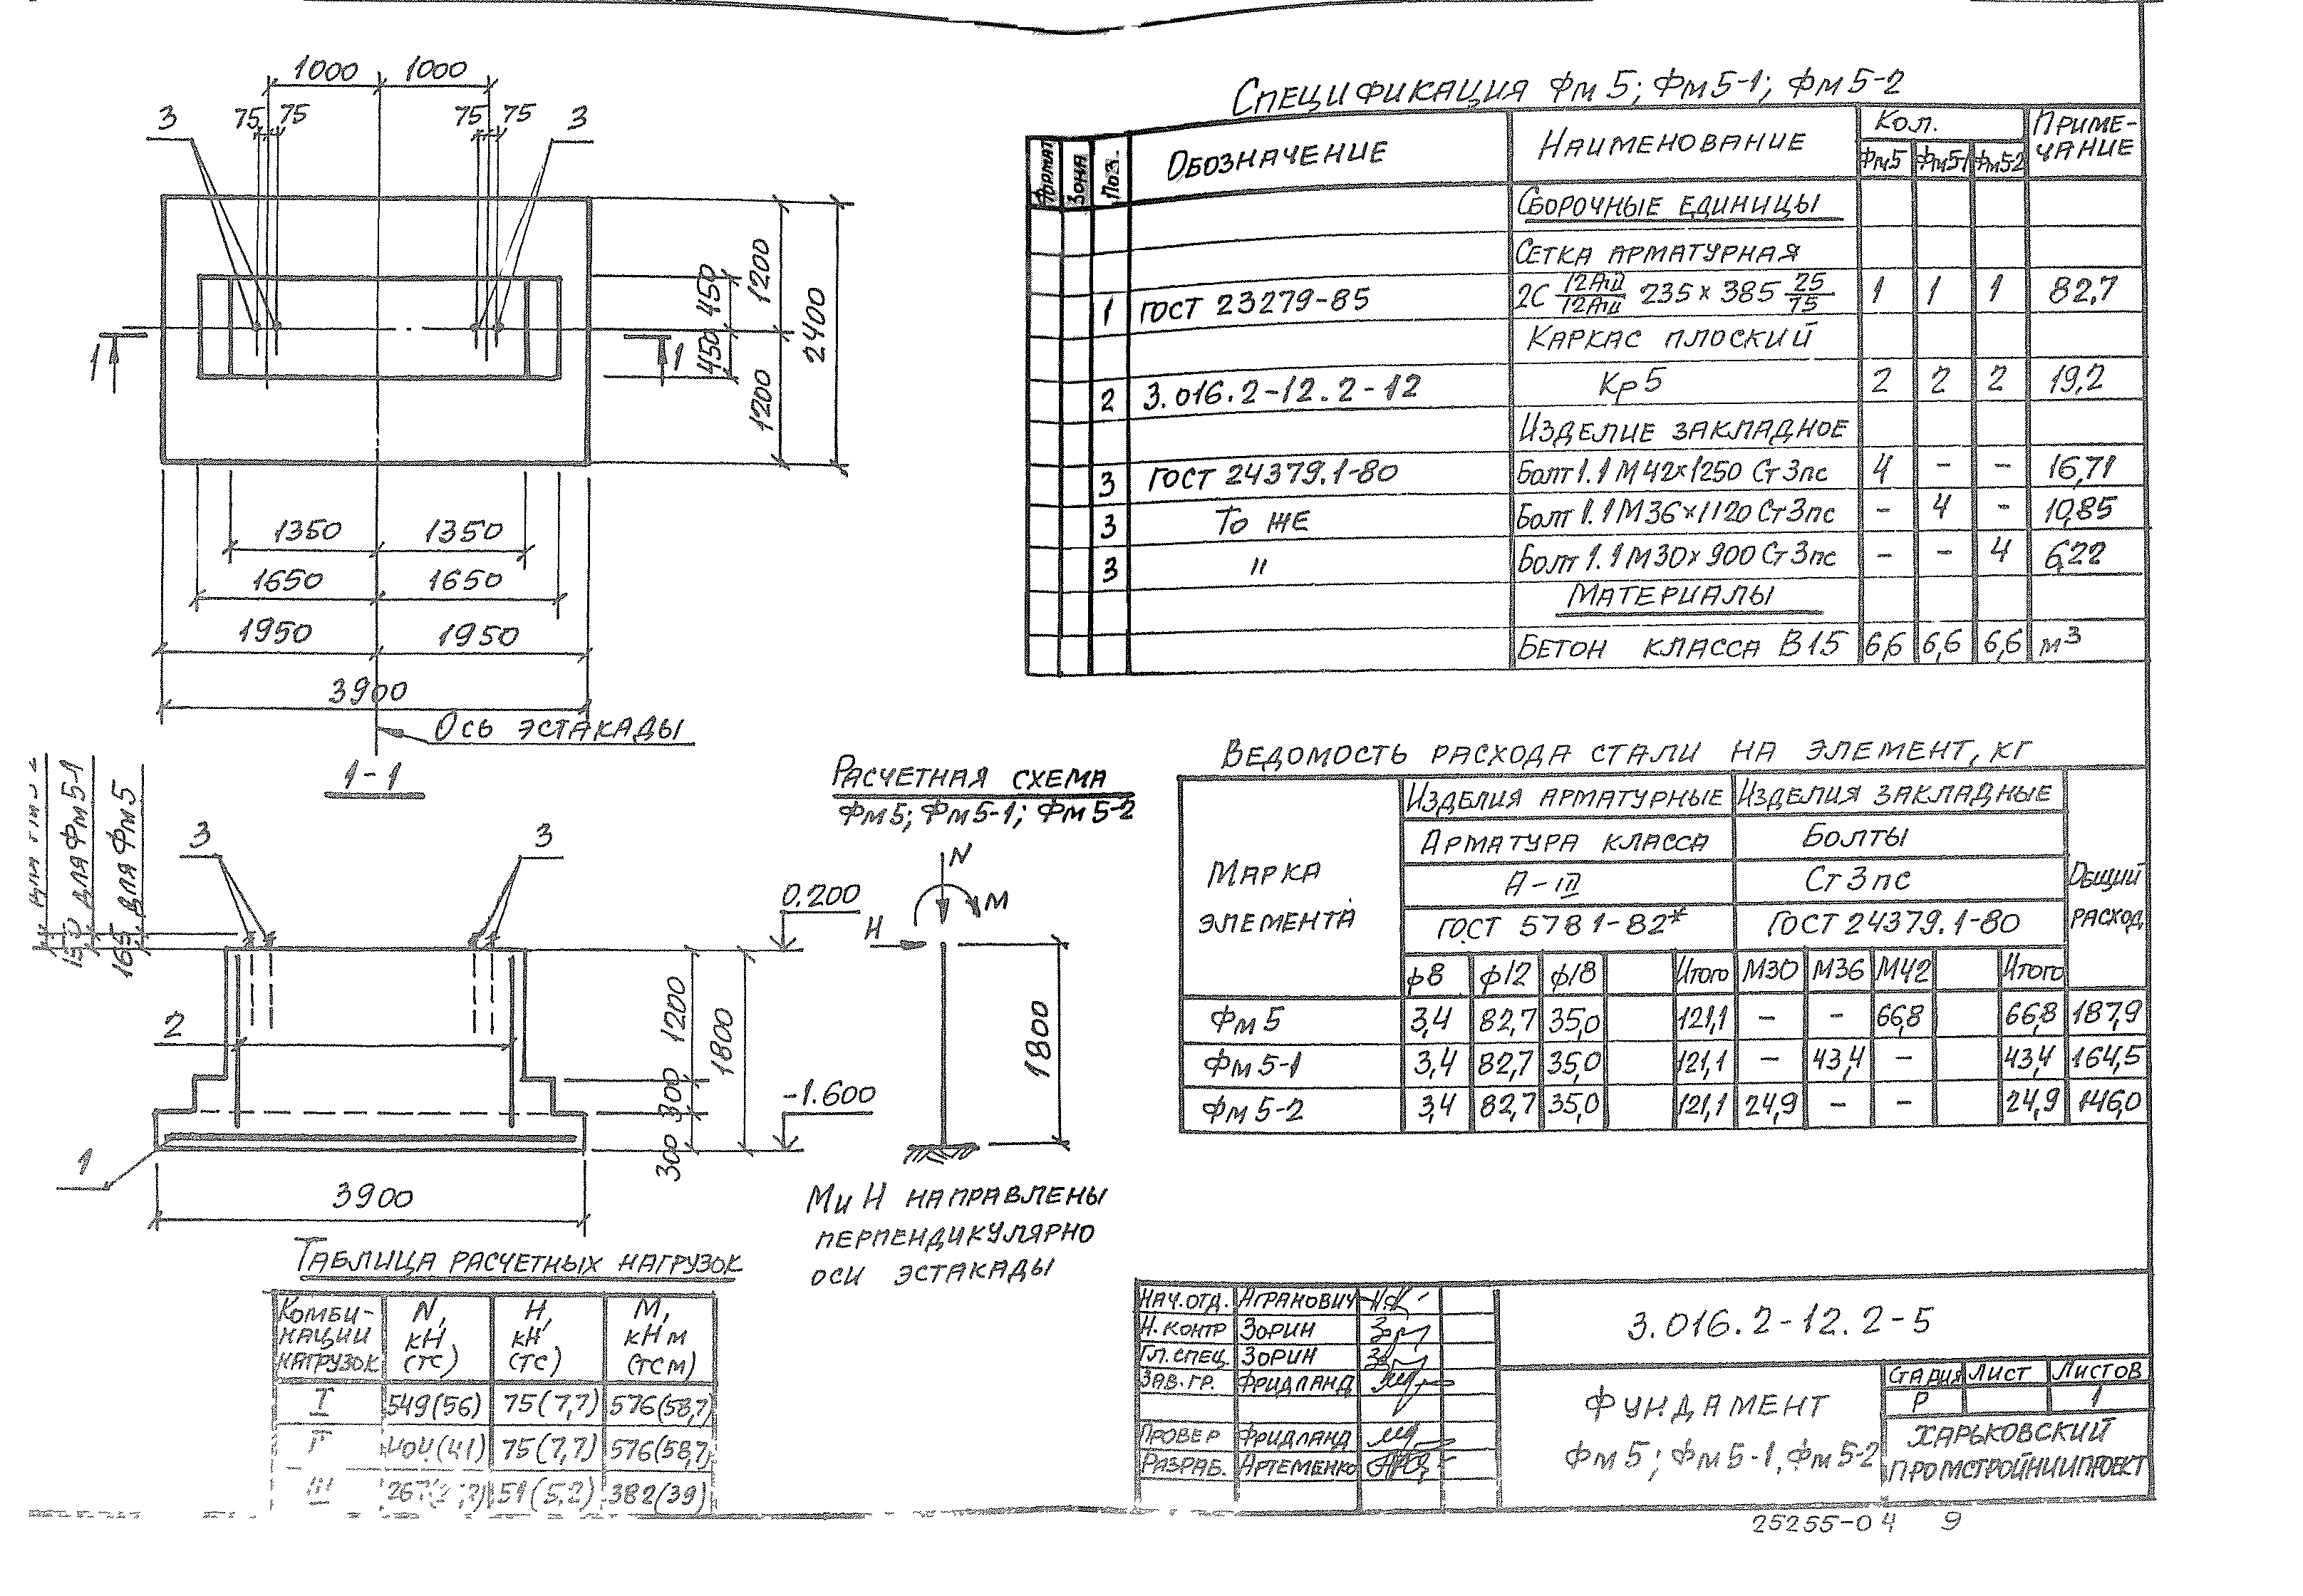 1000 1000
75 75 75 75
3 3
1200
450
2400
450
1200
1 1
1350 1350
1650 1650
1950 1950
3900
Ось эстакады
1-1
150 для Фм5-1
165 для Фм5
3 3
2
1
0.200
-1.600
1200
300
300
1800
3900
Расчетная схема
Фм5; Фм5-1; Фм5-2
N
M
H
1800
М и Н направлены
перпендикулярно
оси эстакады
Таблица расчетных нагрузок
Комби- N, H, M,
нации кН кН кНм
нагрузок (тс) (тс) (тсм)
I 549(56) 75(7,7) 576(58,7)
75(7,7) 576(58,7)
III 51(5,2) 382(39)
Спецификация Фм5; Фм5-1; Фм5-2
Формат Зона Поз. Обозначение Наименование Кол. Приме-
Фм5 Фм5-1 Фм5-2 чание
Сборочные единицы
Сетка арматурная
1 ГОСТ 23279-85 2С 12АIII/12АIII 235×385 25/75 1 1 1 82,7
Каркас плоский
2 3.016.2-12.2-12 Кр5 2 2 2 19,2
Изделие закладное
3 ГОСТ 24379.1-80 Болт 1.1М42×1250 Ст3пс 4 - - 16,71
3 То же Болт 1.1М36×1120 Ст3пс - 4 - 10,85
3 " Болт 1.1М30×900 Ст3пс - - 4 6,22
Материалы
Бетон класса В15 6,6 6,6 6,6 м³
Ведомость расхода стали на элемент, кг
Марка элемента Изделия арматурные Изделия закладные Общий расход
Арматура класса Болты
А-III Ст3пс
ГОСТ 5781-82* ГОСТ 24379.1-80
ф8 ф12 ф18 Итого М30 М36 М42 Итого
Фм5 3,4 82,7 35,0 121,1 - - 66,8 66,8 187,9
Фм5-1 3,4 82,7 35,0 121,1 - 43,4 - 43,4 164,5
Фм5-2 3,4 82,7 35,0 121,1 24,9 - - 24,9 146,0
Нач.отд. Агранович
Н.контр Зорин
Гл.спец. Зорин
Зав.гр. Фридланд
Провер Фридланд
Разраб. Артеменко
3.016.2-12.2-5
Фундамент
Фм5; Фм5-1, Фм5-2
Стадия Лист Листов
Р 1
Харьковский
Промстройниипроект
25255-04 9